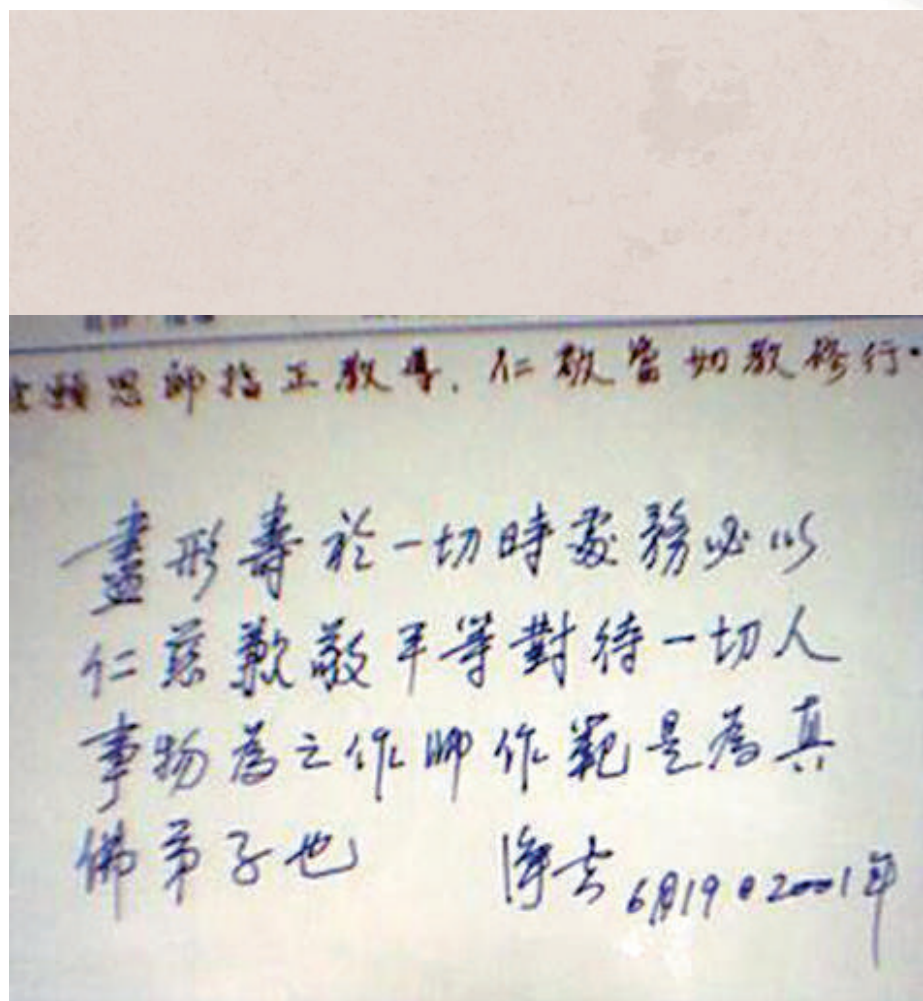 願恩師指正教導,仁敬當如教修行.
盡形壽於一切時處務必以
仁慈歉敬平等對待一切人
事物為之作師作範是為真
佛弟子也 淨空 6月19日2001年